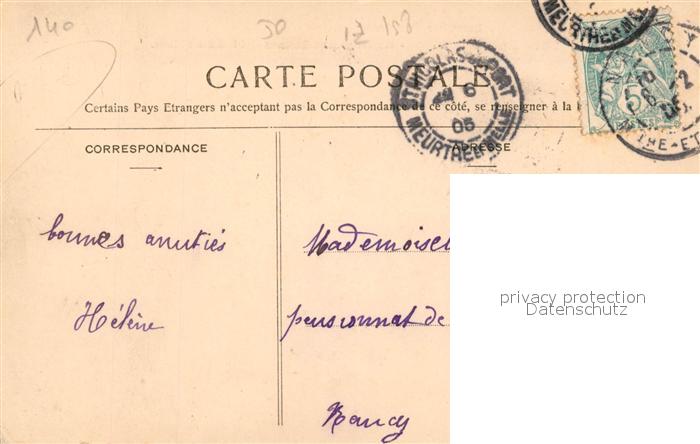 140
30
CARTE POSTALE
Certains Pays Etrangers n'acceptant pas la Correspondance de ce côté, se renseigner à la
CORRESPONDANCE
ADRESSE
NICOLAS PORT
6
05
MEURTHE
MEURTHE
5
bonnes amitiés
Hélène
Mademoisel
pensionnat de
Nancy
privacy protection
Datenschutz